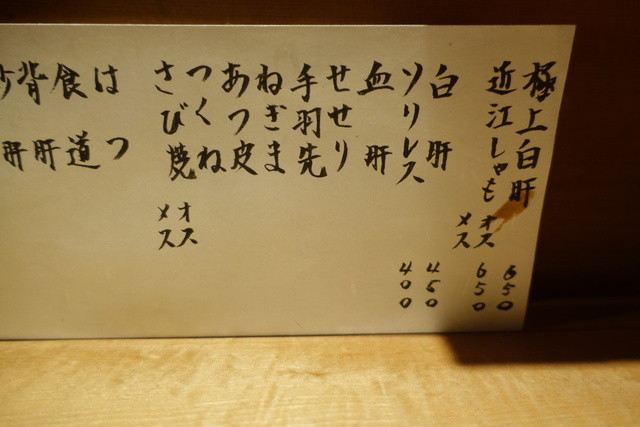 極上白肝 650
近江しゃも オス メス 650
白肝 450
ソリレス 400
血肝
せせり
手羽先
ねぎま
あつ皮
つくね オス
さび焼 メス
はつ
食道
背肝
肝